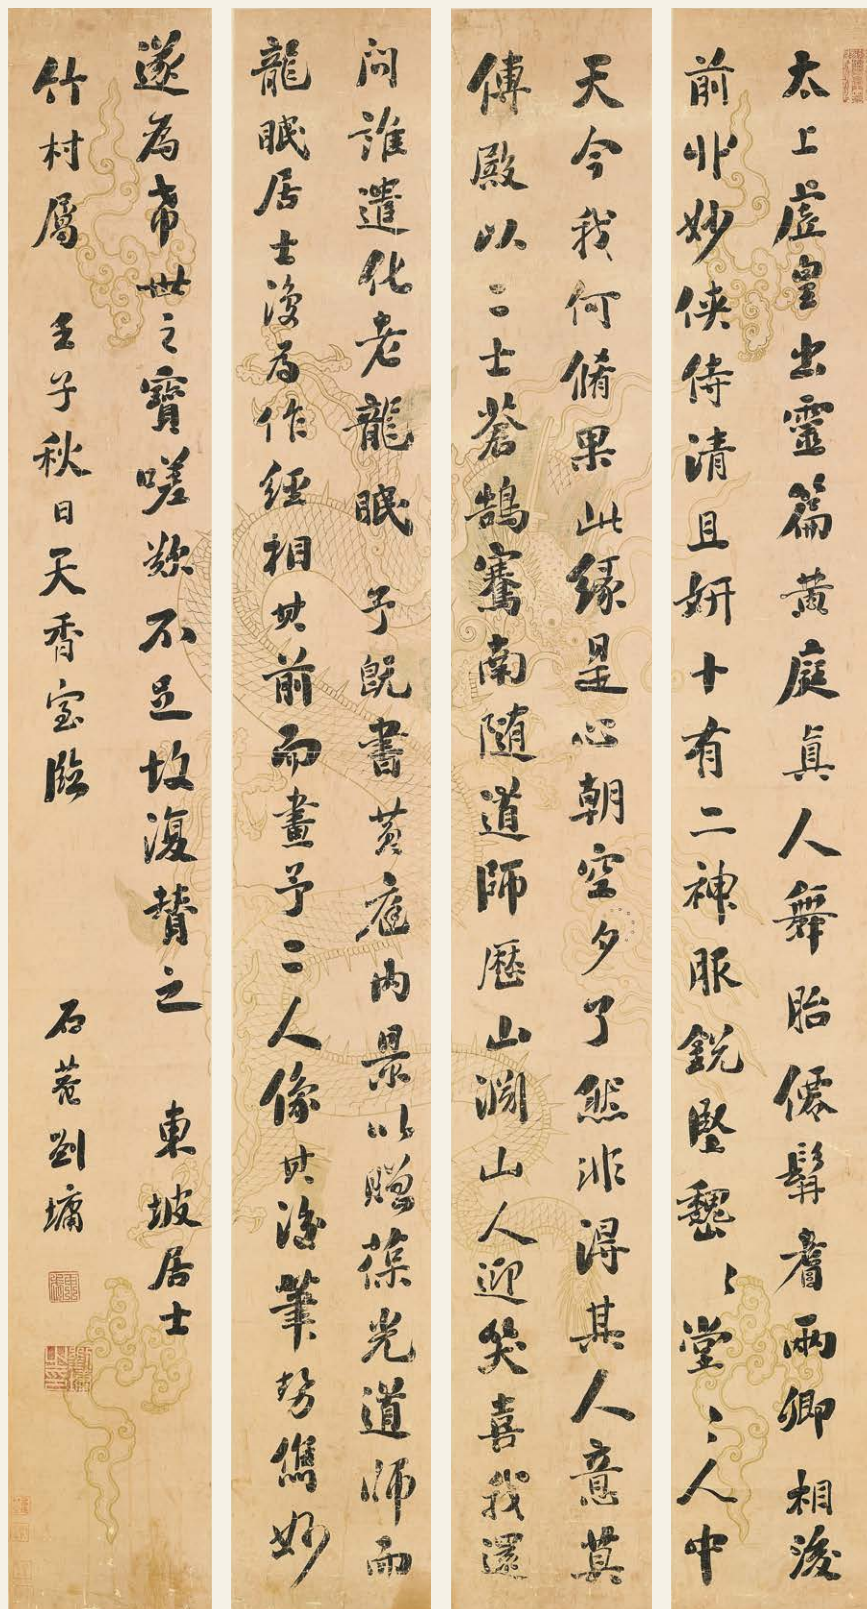 太上虛皇出靈篇黃庭真人舞胎僊髯耆兩卿相後
前丱妙俠侍清且妍十有二神服銳堅巍〻堂〻人中
天今我何脩果此緣是心朝空夕了然非得其人意莫
傳殿以二士蒼鵠騫南隨道師歷山淵山人迎笑喜我還
問誰遣化老龍眠 予既書黃庭內景以贈葆光道師而
龍眠居士復為作經相其前而畫予二人像其後筆勢儁妙
遂為希世之寶嗟歎不足故復贊之 東坡居士
竹村屬 壬子秋日天香室臨 石菴劉墉